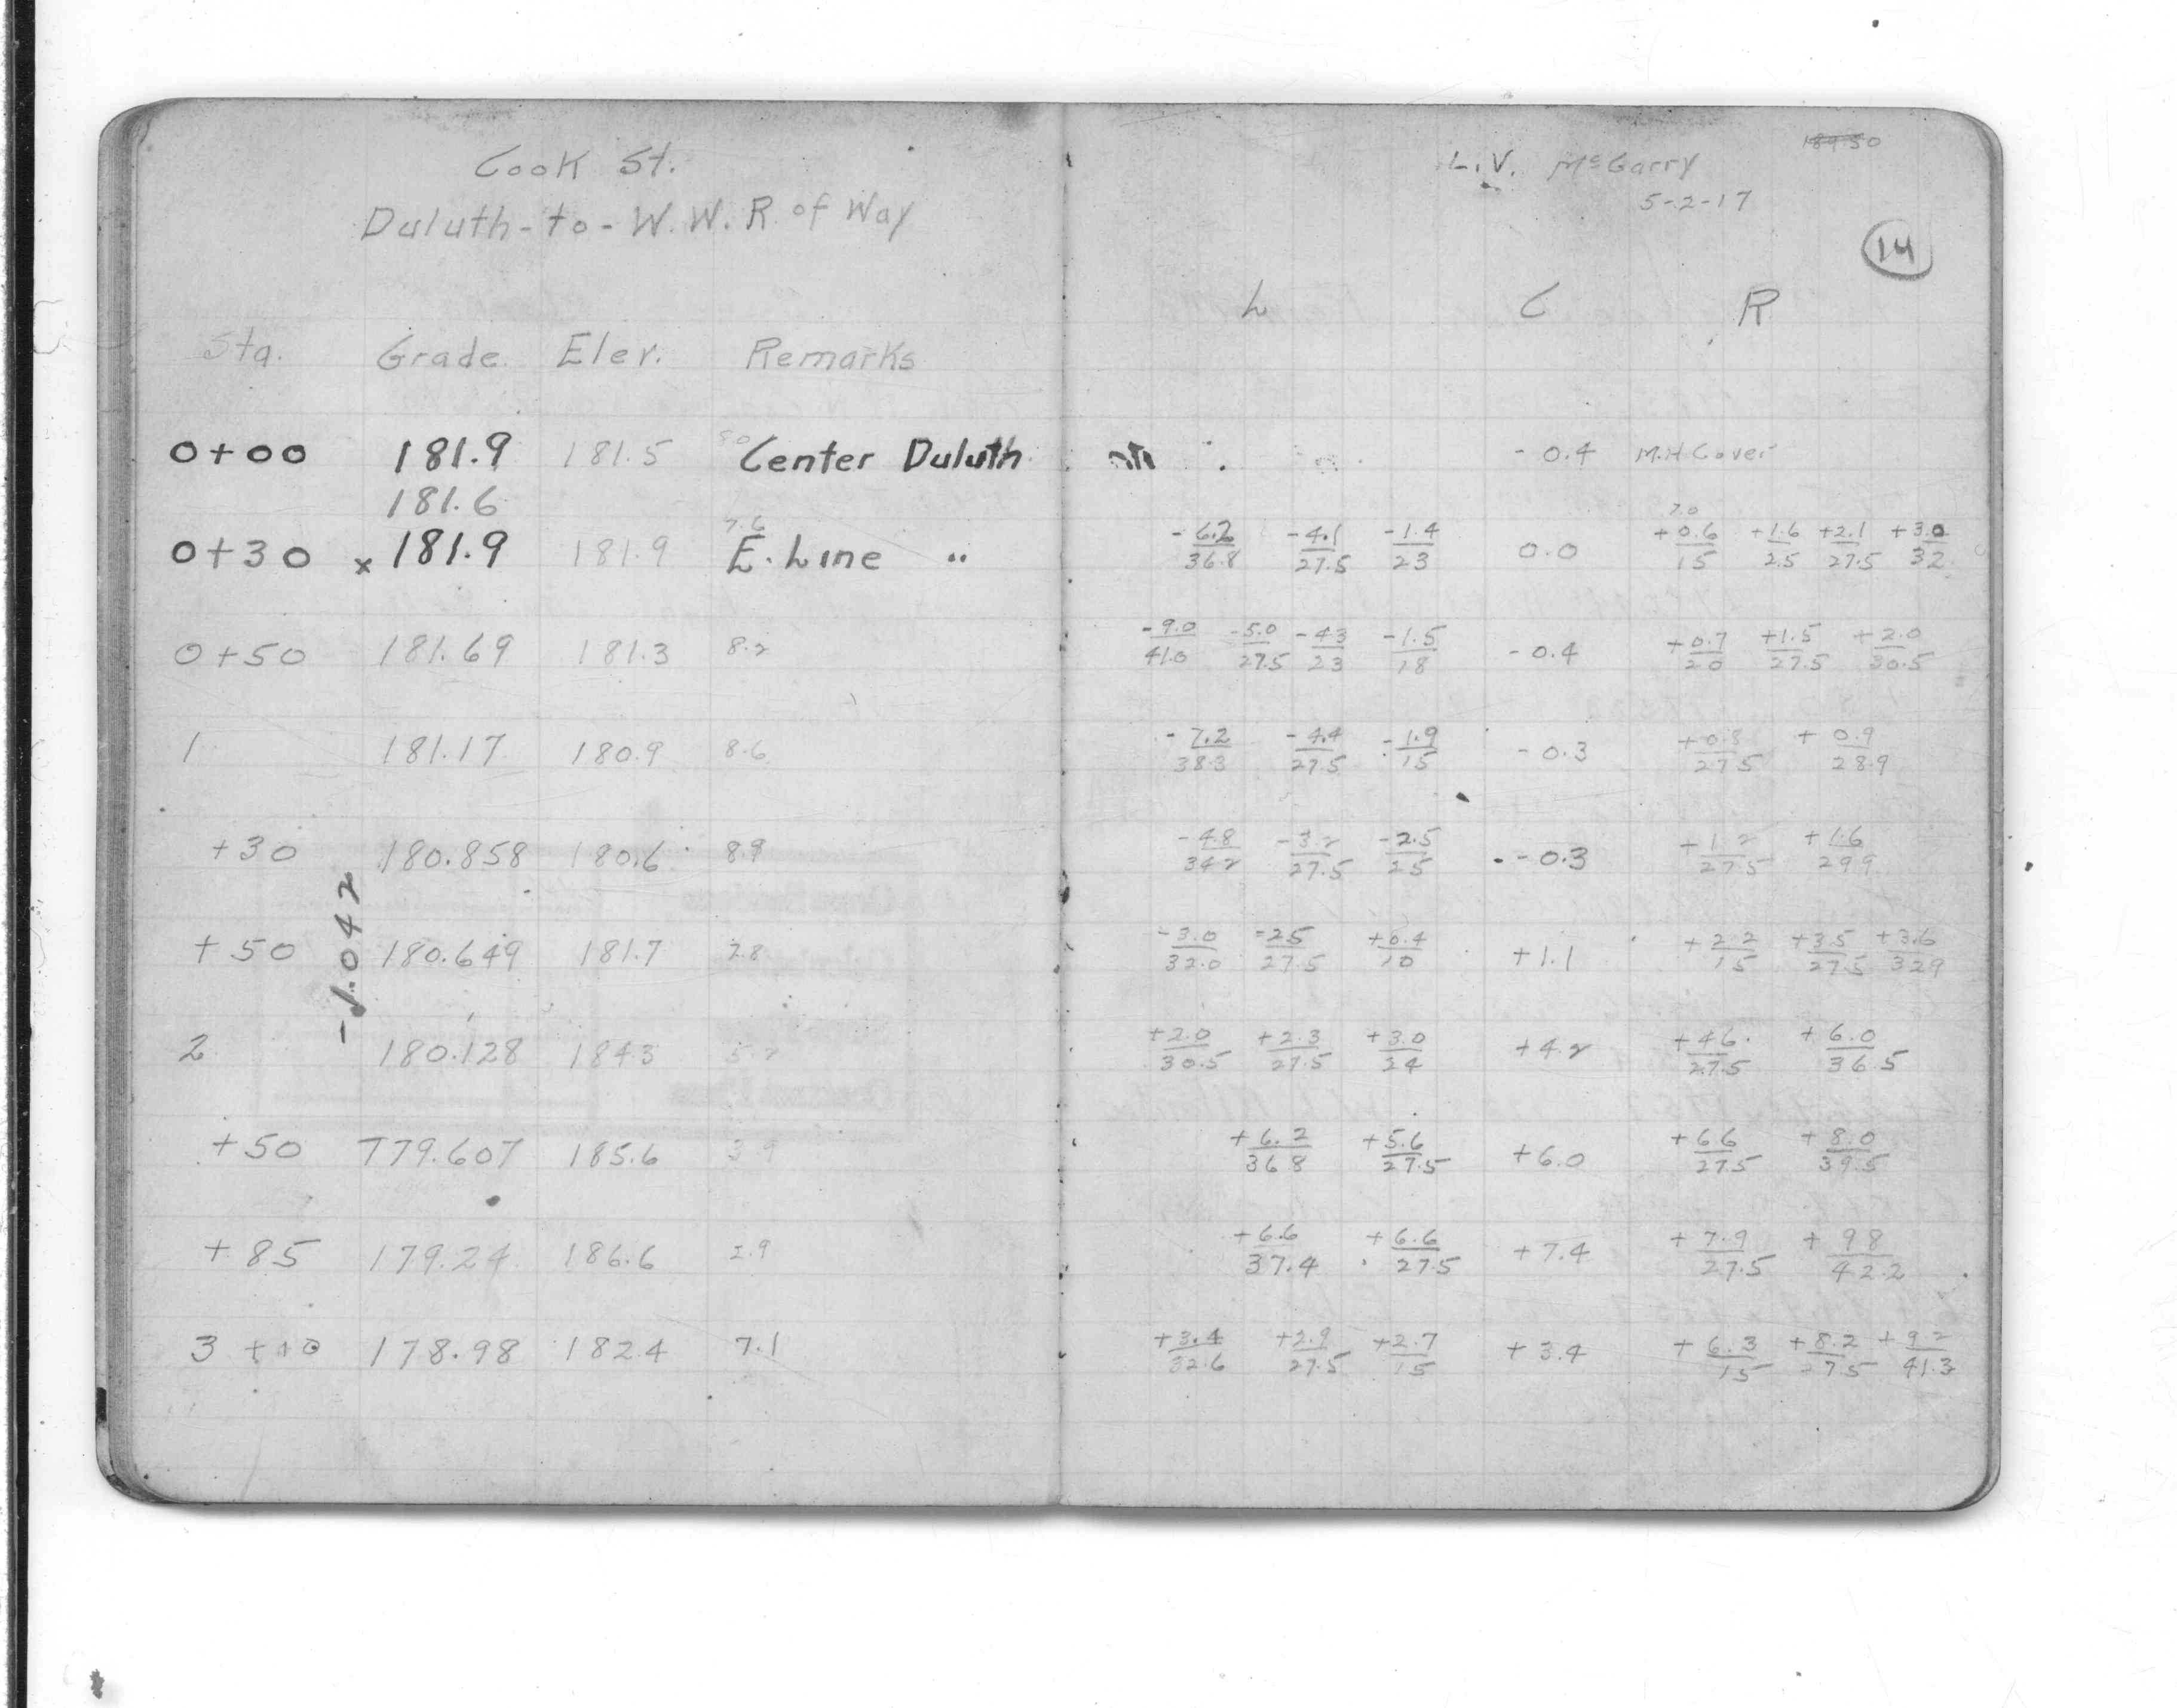 Cook St.
Duluth-to-W.W.R of Way
Sta. Grade Elev. Remarks
0+00 181.9 181.5 Center Duluth
181.6
7.6
0+30 x 181.9 181.9 E. Line "
0+50 181.69 181.3 8.2
1 181.17 180.9 8.6
+30 180.858 180.6 8.9
-1.042
+50 180.649 181.7 7.8
2 180.128 184.3 5.2
+50 179.607 185.6 3.9
+85 179.24 186.6 2.9
3+10 178.98 182.4 7.1
L.V. McGarry
5-2-17
14
L C R
-0.4 M.H Cover
7.0
-6.2/36.8 -4.1/27.5 -1.4/23 0.0 +0.6/15 +1.6/25 +2.1/27.5 +3.0/32
-9.0/41.0 -5.0/27.5 -4.3/23 -1.5/18 -0.4 +0.7/20 +1.5/27.5 +2.0/30.5
-7.2/38.3 -4.4/27.5 -1.9/15 -0.3 +0.8/27.5 +0.9/28.9
-4.8/34.2 -3.2/27.5 -2.5/25 -0.3 +1.2/27.5 +1.6/29.9
-3.0/32.0 -2.5/27.5 +0.4/10 +1.1 +2.2/15 +3.5/27.5 +3.6/32.9
+2.0/30.5 +2.3/27.5 +3.0/24 +4.2 +4.6/27.5 +6.0/36.5
+6.2/36.8 +5.6/27.5 +6.0 +6.6/27.5 +8.0/39.5
+6.6/37.4 +6.6/27.5 +7.4 +7.9/27.5 +9.8/42.2
+3.4/32.6 +2.9/27.5 +2.7/15 +3.4 +6.3/15 +8.2/27.5 +9.2/41.3